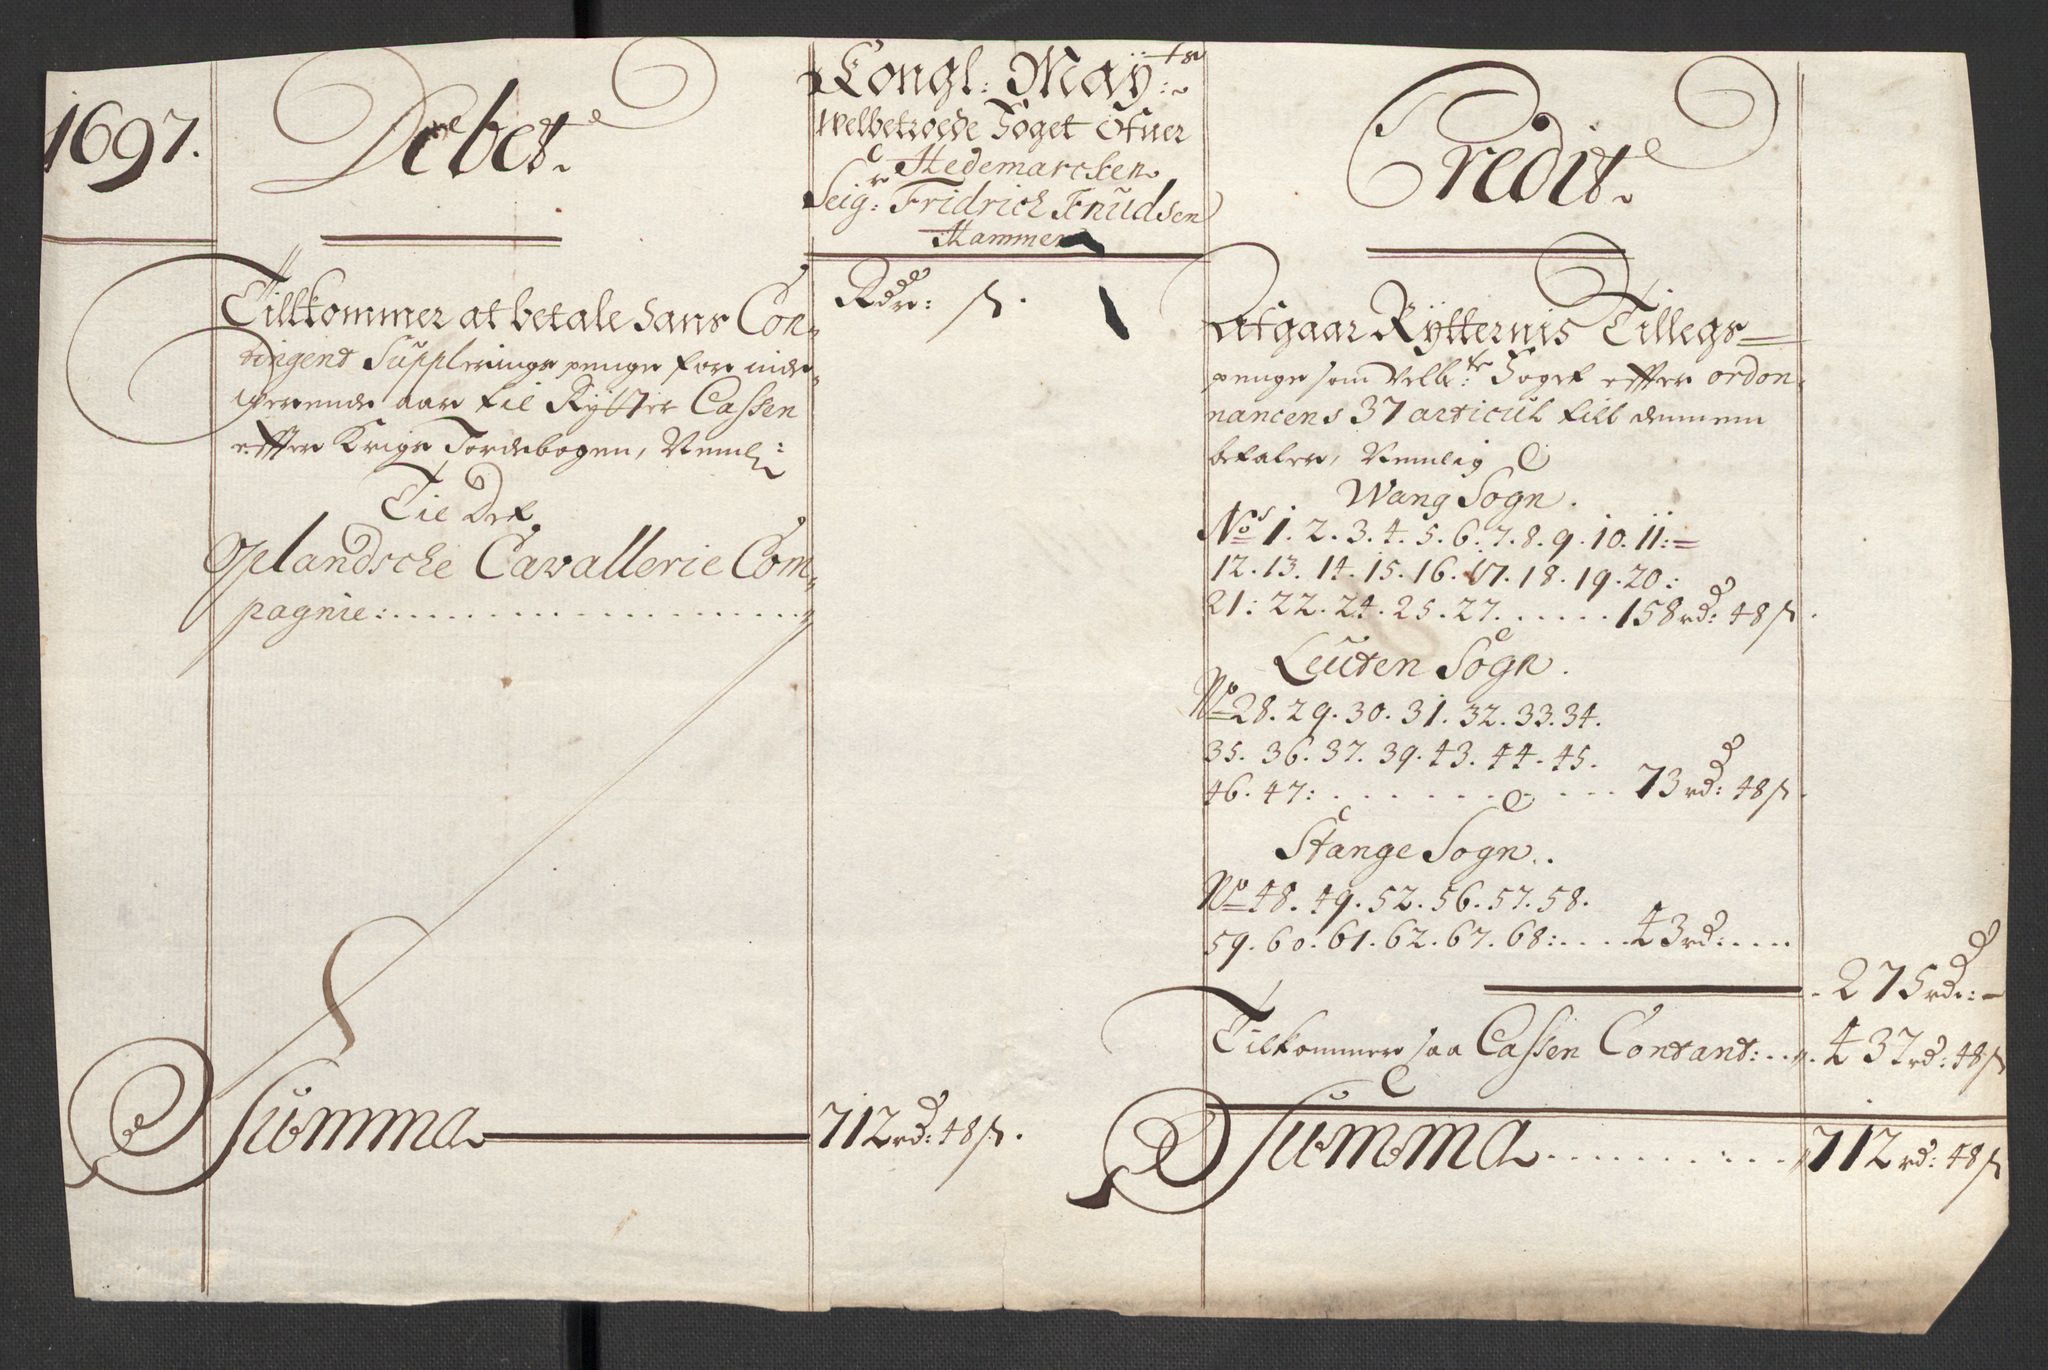 1697.
Debet
Congl: May:ts
Welbetroede Foget Ofuer
Hedemarcken
Seig:r Fridrich Knudsen
Hammer
Credit
Rdr: ß.
Tillkommer at betale hans Con-
tingent Supplerings penge for inde-
werende aar til Rytter Cassen
effter Krigs Jordebogen, Neml:
Til Det
Oplandsche Cavallerie Com-
pagnie:
Summa 712 rd: 48 ß.
Afgaar Rytternis Tillegs
penge som Velb:te Foget effter ordon-
nancens 37 articul till dennem
betaler, Nemlig
Wang Sogn.
No:s 1. 2. 3. 4. 5. 6. 7. 8. 9. 10. 11:
12. 13. 14. 15. 16. 17. 18. 19. 20:
21: 22. 24. 25. 27. . . . . . 158 rd: 48 ß.
Leuten Sogn.
No 28. 29. 30. 31. 32. 33. 34.
35. 36. 37. 39. 43. 44. 45.
46. 47: . . . . . . . . . 73 rd: 48 ß.
Stange Sogn.
No 48. 49. 52. 56. 57. 58.
59. 60. 61. 62. 67. 68: . . . . 43 rd: . . . .
275 rd: -
Tilkommer saa Cassen Contant: . . . 437 rd: 48 ß
Summa . . . . . . . . . 712 rd: 48 ß